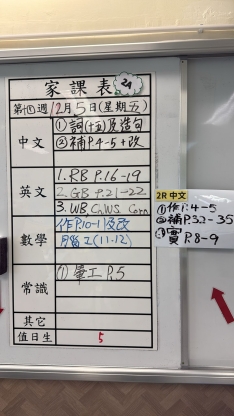 家課表 24
第十四週 12月5日(星期五)
中文
①詞(十五)及造句
②補P.4-5+改
英文
1.RB P.16-19
2.GB P.21-22
3.WB, C.WS, Corr.
數學
作P.10-11及改
(11-12)
常識
①筆工P.5
其它
值日生 5
2R 中文
①作P.4-5
②補P.32-35
③寶P.8-9